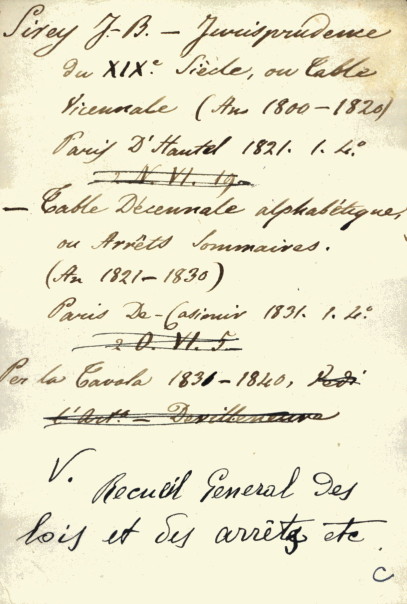 Sirey J.-B. — Jurisprudence
du XIXe Siècle, ou Table
Vicennale (An 1800-1820)
Paris D'Hautel 1821. 1. 4.º
2 N. VI. 19.
— Table Décennale alphabétique,
ou Arrêts Sommaires.
(An 1821-1830)
Paris De-Casimir 1831. 1. 4.º
2 O. VI. 5
Per la Tavola 1831-1840, Vedi
l'Art.º — Devilleneuve
V. Recueil General des
lois et des arrêts etc
C